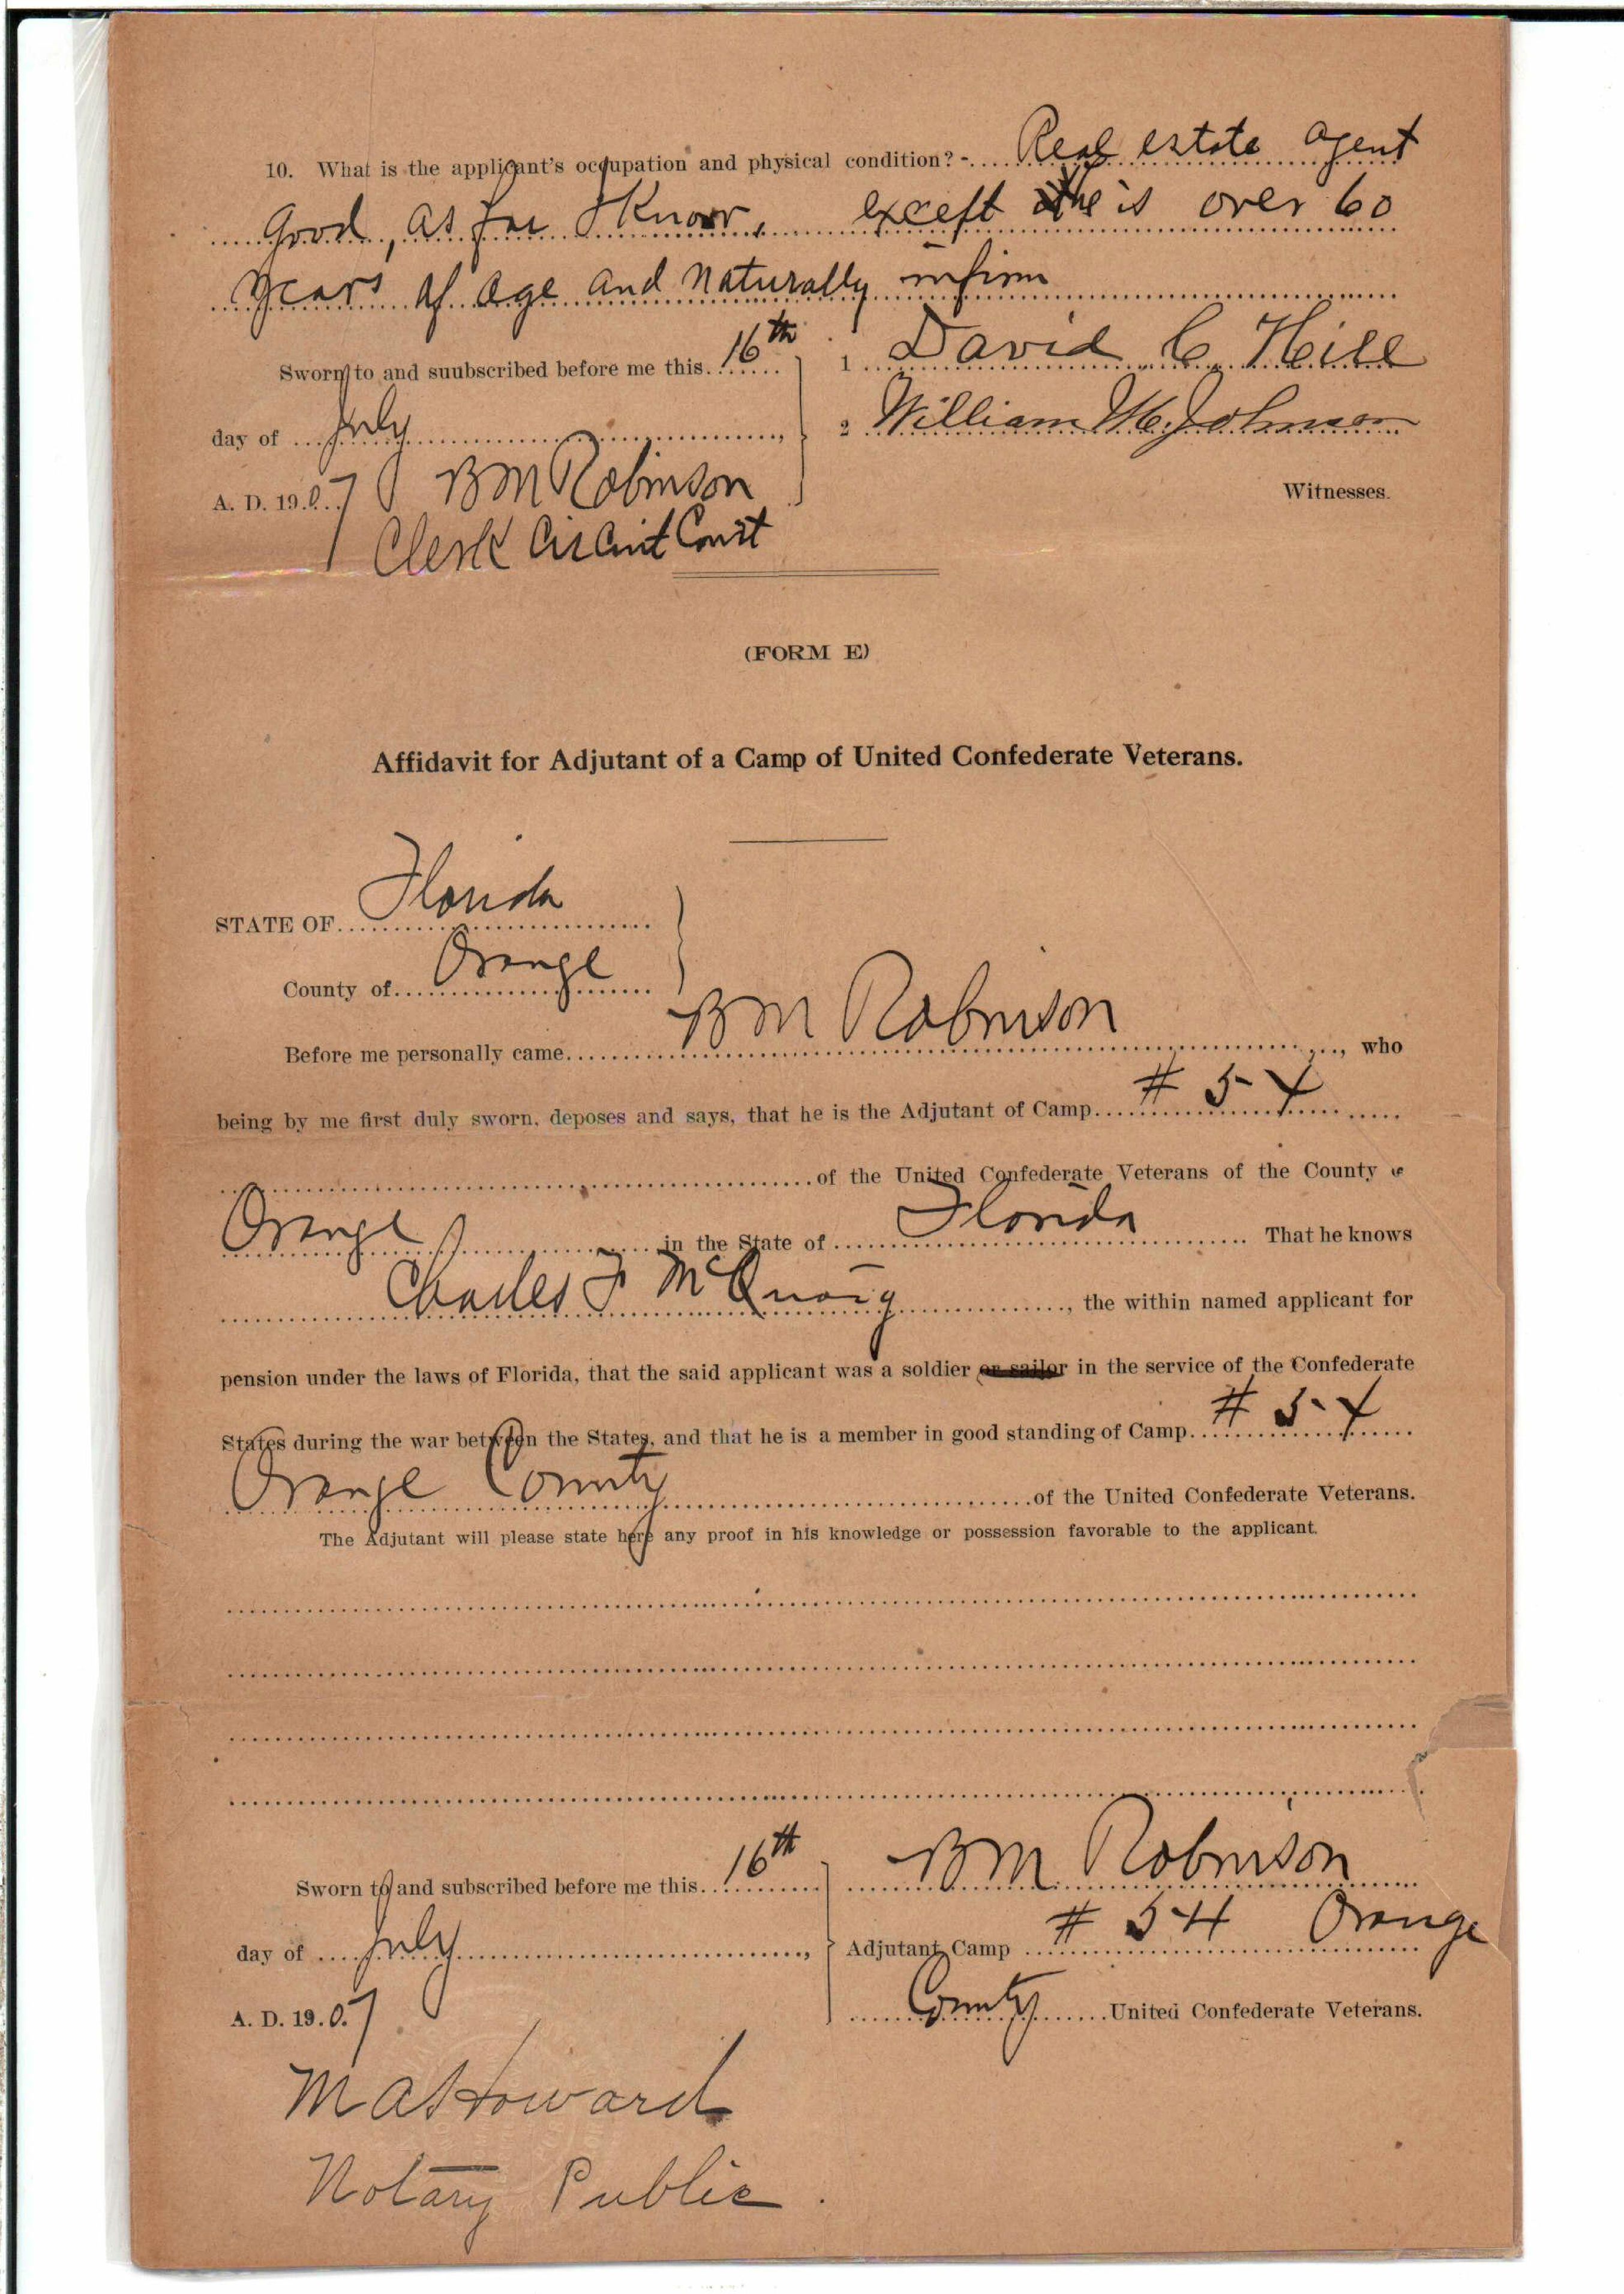 10. What is the applicant's occupation and physical condition? - Real estate agent
Good, as far I Know, except he is over 60
years of age and naturally infirm
Sworn to and suubscribed before me this 16th
1 David C. Hill
day of July,
2 William H. Johnson
A. D. 1907 BM Robinson
Witnesses.
Clerk Circuit Court
(FORM E)
Affidavit for Adjutant of a Camp of United Confederate Veterans.
STATE OF Florida
County of Orange
Before me personally came BM Robinson, who
being by me first duly sworn, deposes and says, that he is the Adjutant of Camp # 54
of the United Confederate Veterans of the County
Orange in the State of Florida That he knows
Charles F McQuaig, the within named applicant for
pension under the laws of Florida, that the said applicant was a soldier or sailor in the service of the Confederate
States during the war between the States, and that he is a member in good standing of Camp # 54
Orange County of the United Confederate Veterans.
The Adjutant will please state here any proof in his knowledge or possession favorable to the applicant.
Sworn to and subscribed before me this 16th
BM Robinson
day of July,
Adjutant Camp # 54 Orange
A. D. 1907
County United Confederate Veterans.
M A Howard
Notary Public.